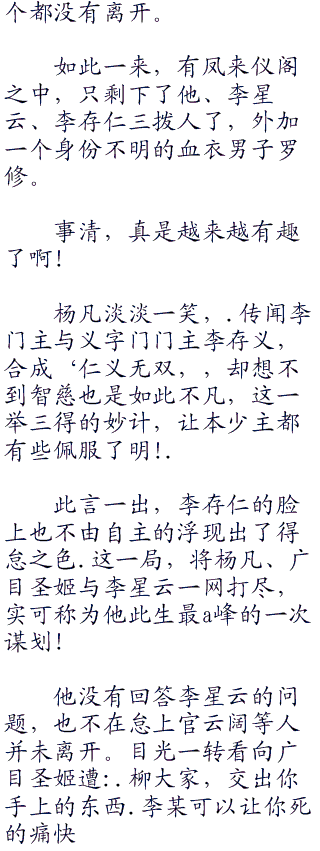 个都没有离开。
如此一来，有凤来仪阁
之中，只剩下了他、李星
云、李存仁三拨人了，外加
一个身份不明的血衣男子罗
修。
事清，真是越来越有趣
了啊！
杨凡淡淡一笑，.传闻李
门主与义字门门主李存义，
合成‘仁义无双，，却想不
到智慈也是如此不凡，这一
举三得的妙计，让本少主都
有些佩服了明!.
此言一出，李存仁的脸
上也不由自主的浮现出了得
怠之色.这一局，将杨凡、广
目圣姬与李星云一网打尽，
实可称为他此生最a峰的一次
谋划！
他没有回答李星云的问
题，也不在怠上官云阔等人
并未离开。目光一转看向广
目圣姬遭:.柳大家，交出你
手上的东西.李某可以让你死
的痛快